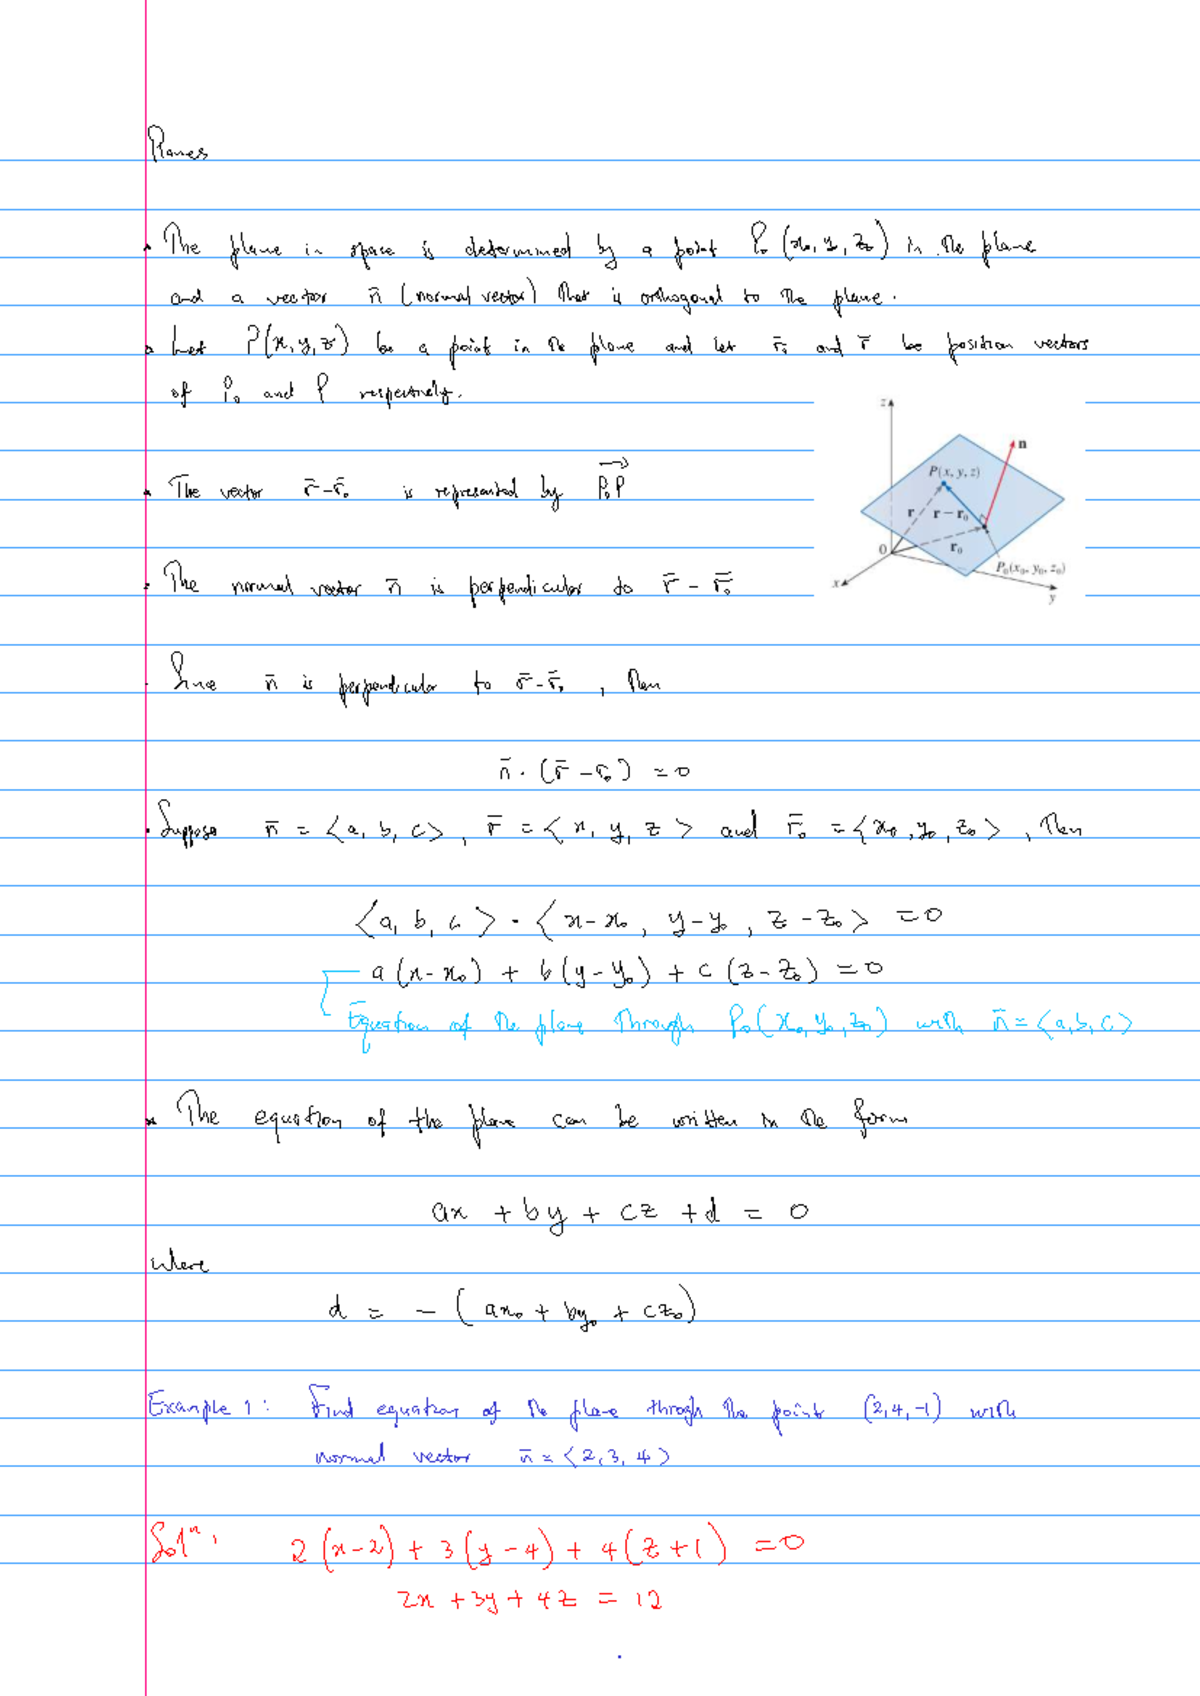 Planes
• The plane in space is determined by a point P₀(x₀, y₀, z₀) in the plane
and a vector n̄ (normal vector) that is orthogonal to the plane.
• Let P(x, y, z) be a point in the plane and let r̄₀ and r̄ be position vectors
of P₀ and P respectively.
z
n
P(x, y, z)
r
r − r₀
0
r₀
P₀(x₀, y₀, z₀)
x
y
• The vector r̄ − r̄₀ is represented by P₀P
• The normal vector n̄ is perpendicular to r̄ − r̄₀
• Since n̄ is perpendicular to r̄ − r̄₀ , then
n̄ · (r̄ − r₀) = 0
• Suppose n̄ = ⟨a, b, c⟩, r̄ = ⟨x, y, z⟩ and r̄₀ = ⟨x₀, y₀, z₀⟩, then
⟨a, b, c⟩ · ⟨x − x₀, y − y₀, z − z₀⟩ = 0
a(x − x₀) + b(y − y₀) + c(z − z₀) = 0
Equation of the plane through P₀(x₀, y₀, z₀) with n̄ = ⟨a, b, c⟩
* The equation of the plane can be written in the form
ax + by + cz + d = 0
where
d = − (ax₀ + by₀ + cz₀)
Example 1: Find equation of the plane throgh the point (2, 4, −1) with
normal vector n̄ = ⟨2, 3, 4⟩
Solⁿ: 2(x − 2) + 3(y − 4) + 4(z + 1) = 0
2x + 3y + 4z = 12